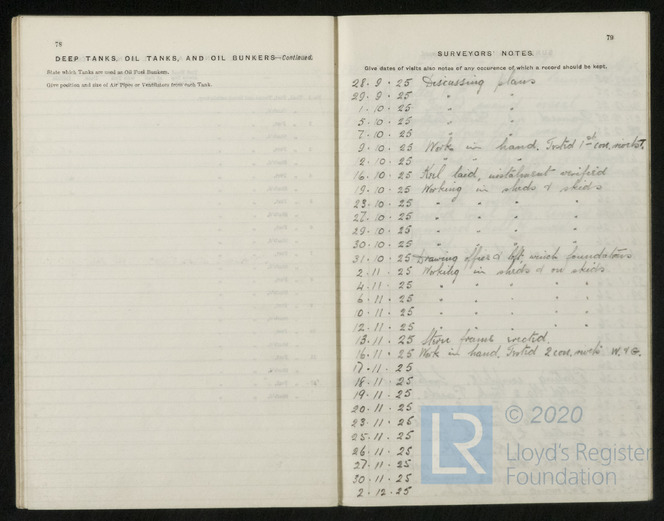 78
DEEP TANKS, OIL TANKS, AND OIL BUNKERS—Continued.
State which Tanks are used as Oil Fuel Bunkers.
Give position and size of Air Pipes or Ventilators from each Tank.
79
SURVEYORS' NOTES.
Give dates of visits also notes of any occurence of which a record should be kept.
28 . 9 . 25 Discussing plans
29 . 9 . 25 " "
1 . 10 . 25 " "
5 . 10 . 25 " "
7 . 10 . 25 " "
9 . 10 . 25 Work in hand. 1st
2 . 10 . 25 " "
16 . 10 . 25 Keel laid, instalment verified
19 . 10 . 25 Working in sheds & skids
23 . 10 . 25 " " " "
27 . 10 . 25 " " " "
29 . 10 . 25 " " " "
30 . 10 . 25 " " " "
31 . 10 . 25 Drawing office & loft, foundations
2 . 11 . 25 Working in sheds & on skids
4 . 11 . 25 " " " " "
6 . 11 . 25 " " " " "
10 . 11 . 25 " " " " "
12 . 11 . 25 " " " " "
13 . 11 . 25 frame erected.
16 . 11 . 25 Work in hand. 2 W. & G.
17 . 11 . 25
18 . 11 . 25
19 . 11 . 25
20 . 11 . 25
23 . 11 . 25
25 . 11 . 25
26 . 11 . 25
27 . 11 . 25
30 . 11 . 25
2 . 12 . 25
LR
© 2020
Lloyd's Register
Foundation